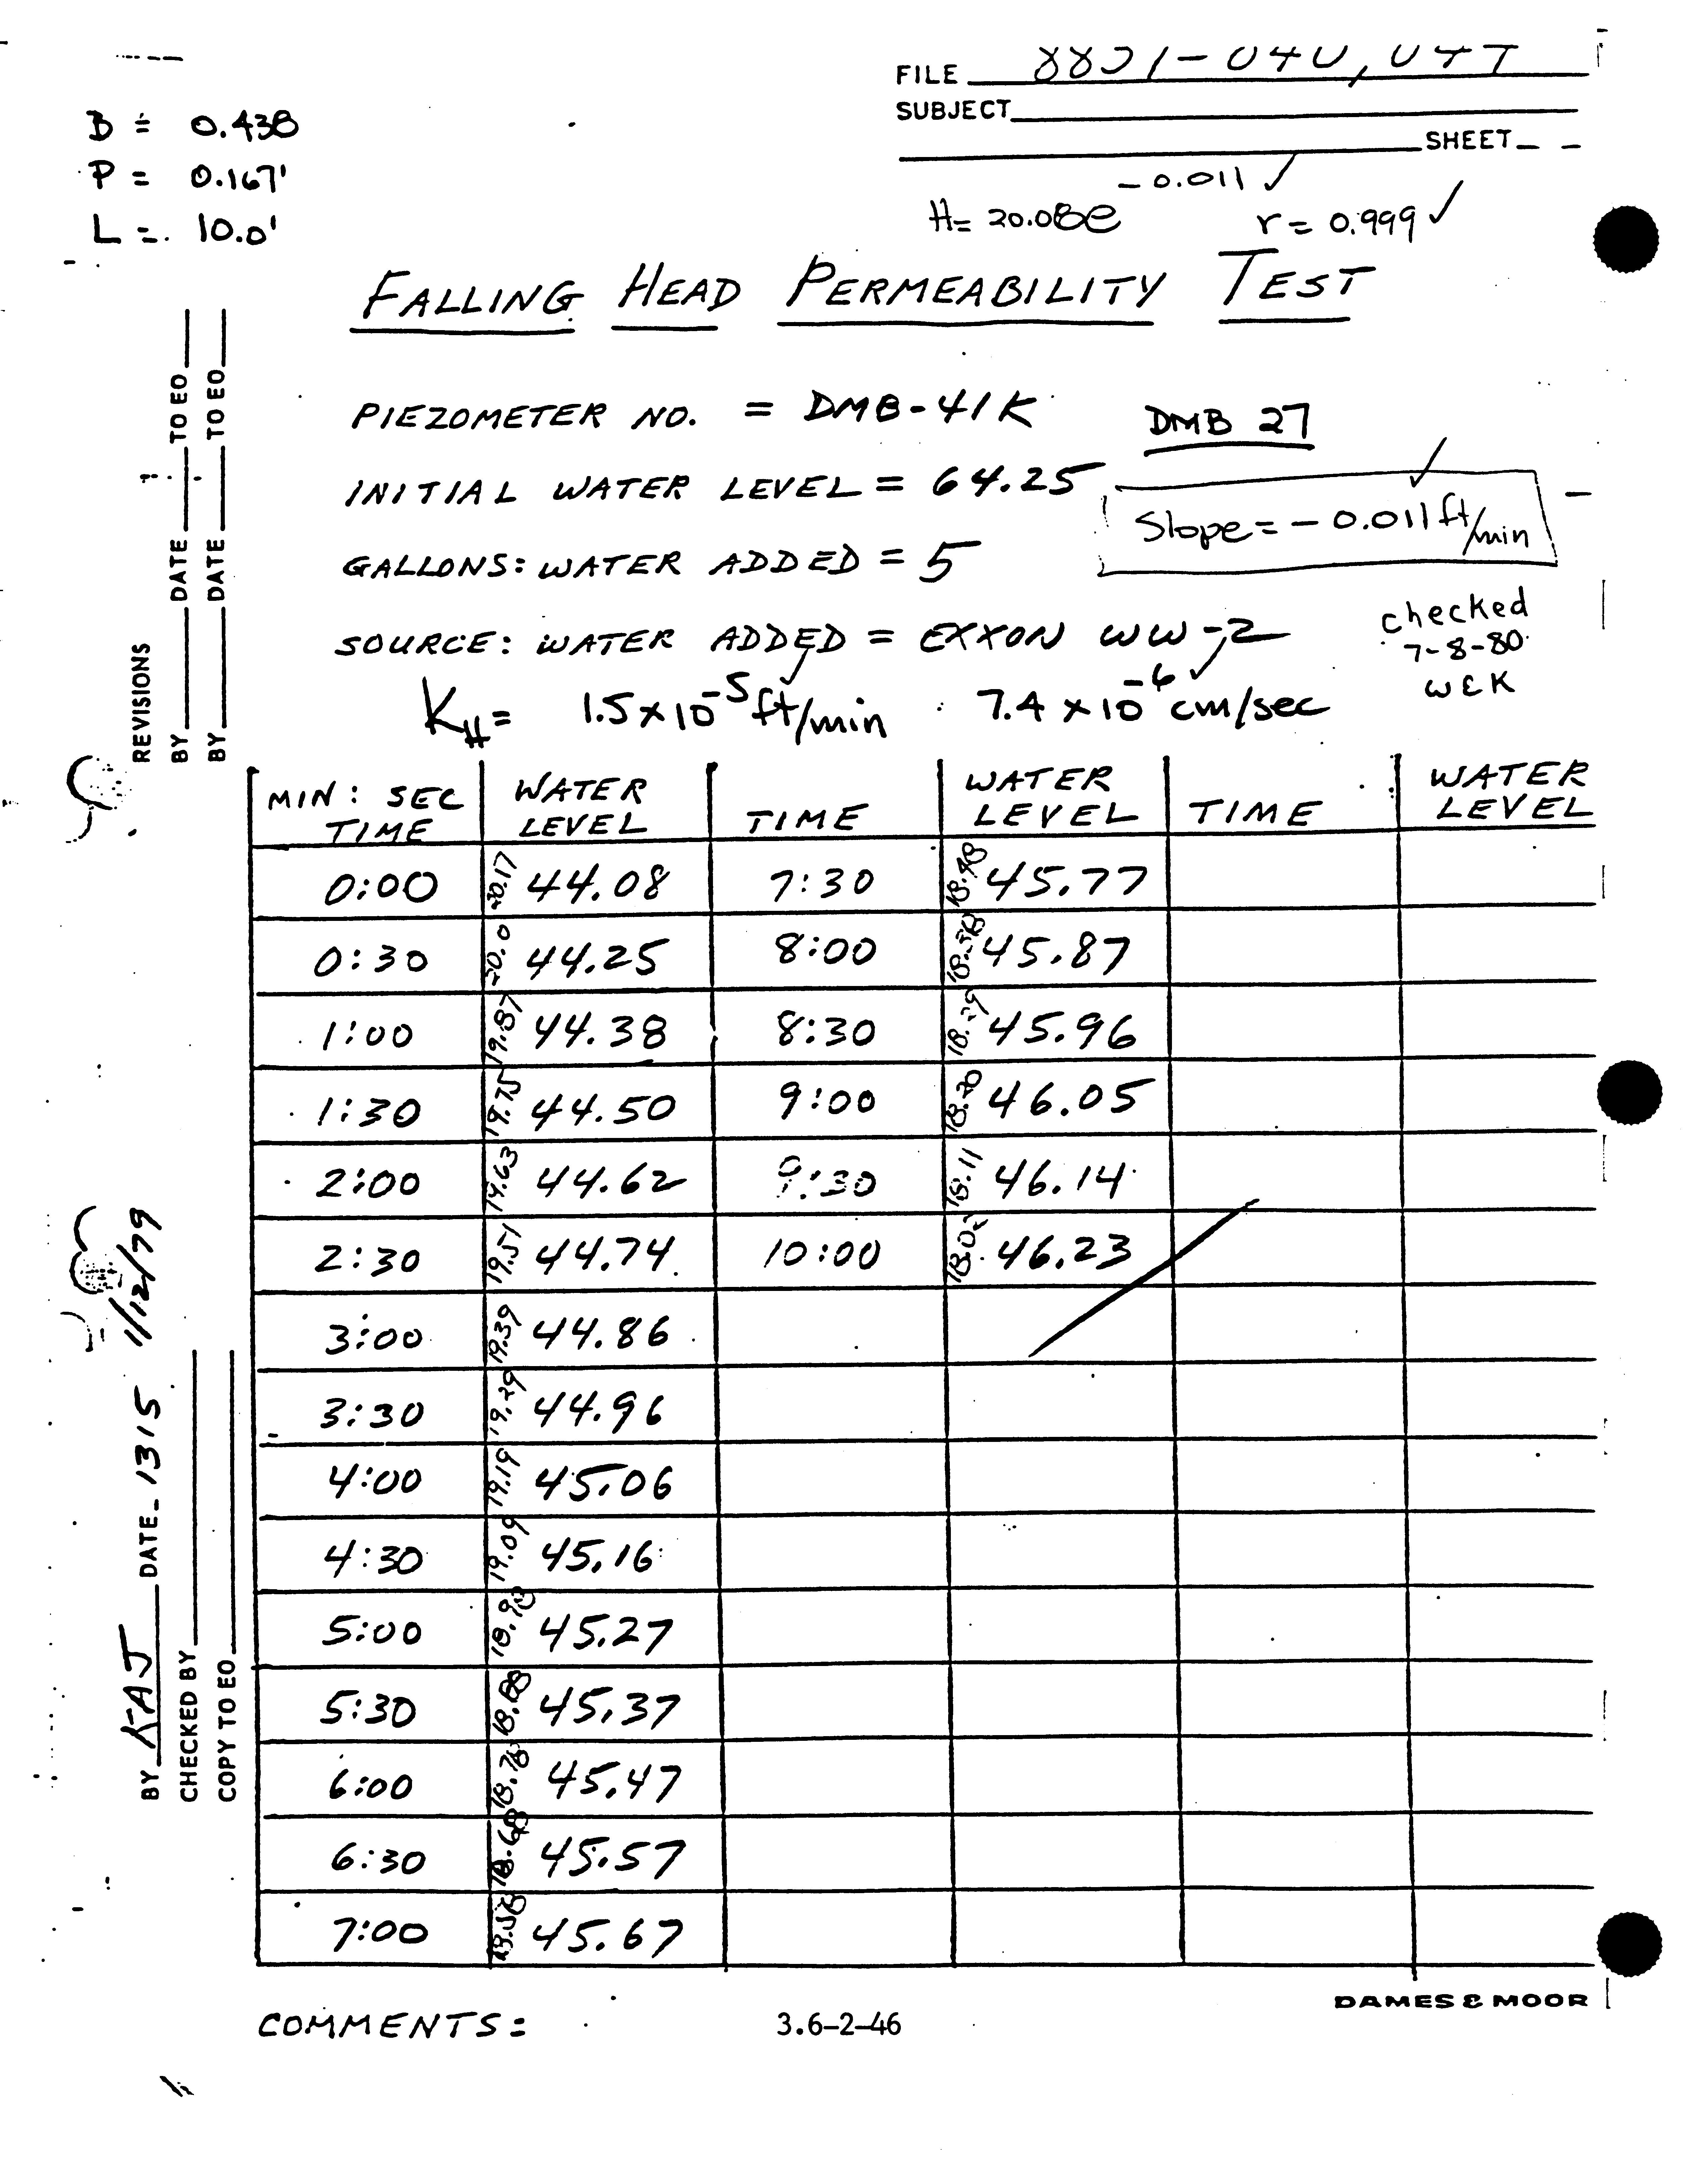 FILE
SUBJECT
SHEET
B = 0.438
P = 0.167'
L = 10.0'
-0.011 ✓
H= 20.08e r = 0.999 ✓
FALLING HEAD PERMEABILITY TEST
PIEZOMETER NO. = DMB-41K DMB 27
INITIAL WATER LEVEL = 64.25
Slope = -0.011 ft/min
GALLONS: WATER ADDED = 5
SOURCE: WATER ADDED = EXXON WW-2
checked
7-8-80
WEK
KH = 1.5 x 10-5 ft/min 7.4 x 10-6 cm/sec
REVISIONS
BY DATE TO EO
BY DATE TO EO
MIN: SEC TIME WATER LEVEL TIME WATER LEVEL TIME WATER LEVEL
0:00 20.17 44.08 7:30 18.48 45.77
0:30 20.0 44.25 8:00 18.38 45.87
1:00 19.87 44.38 8:30 18.29 45.96
1:30 19.75 44.50 9:00 18.20 46.05
2:00 19.63 44.62 9:30 18.11 46.14
2:30 19.51 44.74 10:00 18.02 46.23
3:00 19.39 44.86
3:30 19.29 44.96
4:00 19.19 45.06
4:30 19.09 45.16
5:00 18.98 45.27
5:30 18.88 45.37
6:00 18.78 45.47
6:30 18.68 45.57
7:00 18.58 45.67
BY KAJ DATE 1315 1/12/79
CHECKED BY
COPY TO EO
DAMES & MOOR
COMMENTS:
3.6-2-46